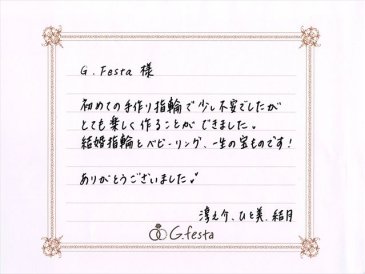 G.Festa 様
初めての手作り指輪で少し不安でしたが
とても楽しく作ることができました。
結婚指輪とベビーリング、一生の宝ものです!
ありがとうございました
ひと美、結月
G.festa